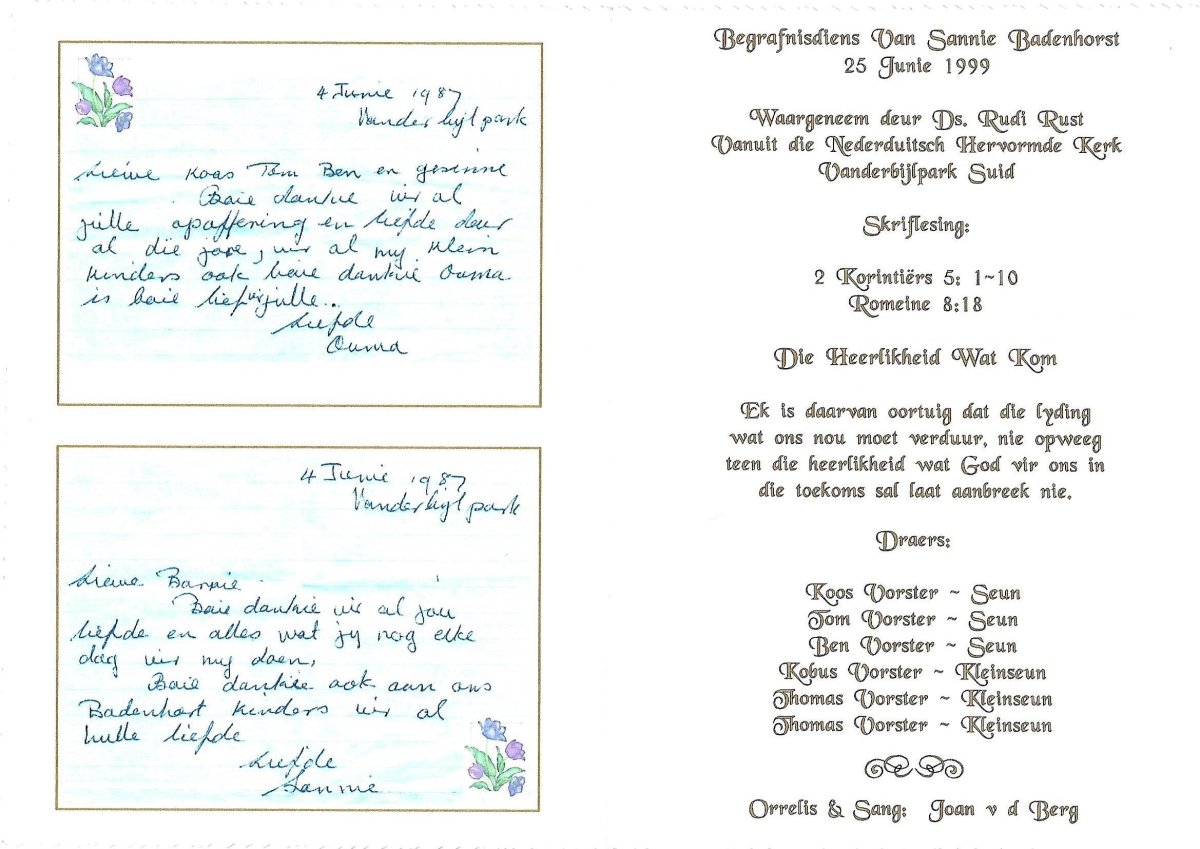 4 Junie 1987
Vanderbijlpark
Liewe Koos Tom Ben en gesinne
Baie dankie vir al
julle opoffering en liefde deur
al die jare, vir al my klein
kinders ook baie dankie Ouma
is baie lief vir julle..
Liefde
Ouma
4 Junie 1987
Vanderbijlpark
Liewe Bannie
Baie dankie vir al jou
liefde en alles wat jy nog elke
dag vir my doen,
Baie dankie ook aan ons
Badenhort kinders vir al
hulle liefde
Liefde
Sannie
Begrafnisdiens Van Sannie Badenhorst
25 Junie 1999
Waargeneem deur Ds. Rudi Rust
Vanuit die Nederduitsch Hervormde Kerk
Vanderbijlpark Suid
Skriflesing:
2 Korintiërs 5: 1~10
Romeine 8:18
Die Heerlikheid Wat Kom
Ek is daarvan oortuig dat die lyding
wat ons nou moet verduur, nie opweeg
teen die heerlikheid wat God vir ons in
die toekoms sal laat aanbreek nie.
Draers:
Koos Vorster ~ Seun
Tom Vorster ~ Seun
Ben Vorster ~ Seun
Kobus Vorster ~ Kleinseun
Thomas Vorster ~ Kleinseun
Thomas Vorster ~ Kleinseun
Orrelis & Sang: Joan v d Berg